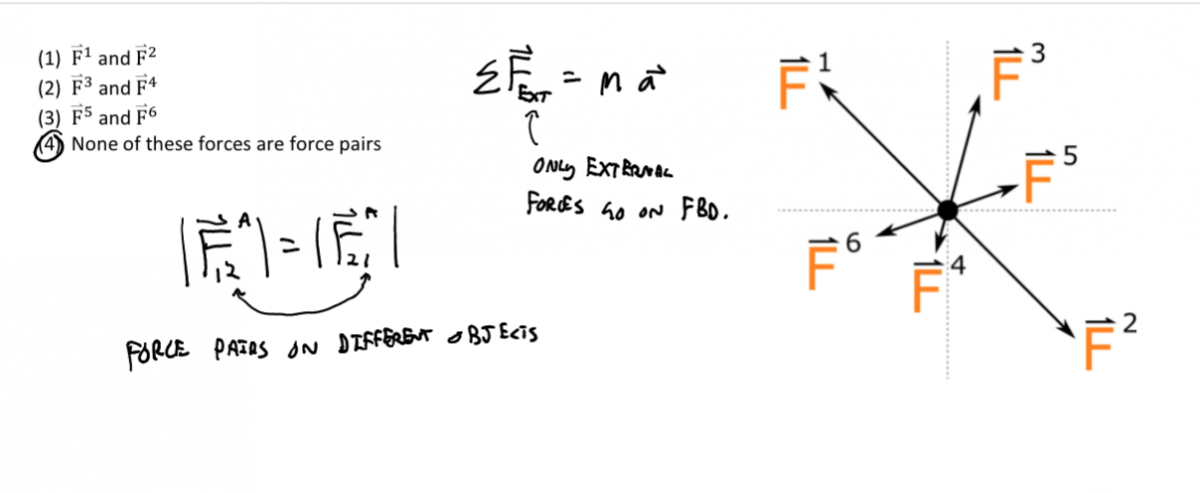 (1) F⃗¹ and F⃗²
(2) F⃗³ and F⃗⁴
(3) F⃗⁵ and F⃗⁶
(4) None of these forces are force pairs
ΣF⃗EXT = m a⃗
ONLY EXTERNAL
FORCES GO ON FBD.
|F⃗₁₂ᴬ| = |F⃗₂₁ᴬ|
FORCE PAIRS ON DIFFERENT OBJECTS
F⃗¹
F⃗³
F⃗⁵
F⃗⁶
F⃗⁴
F⃗²